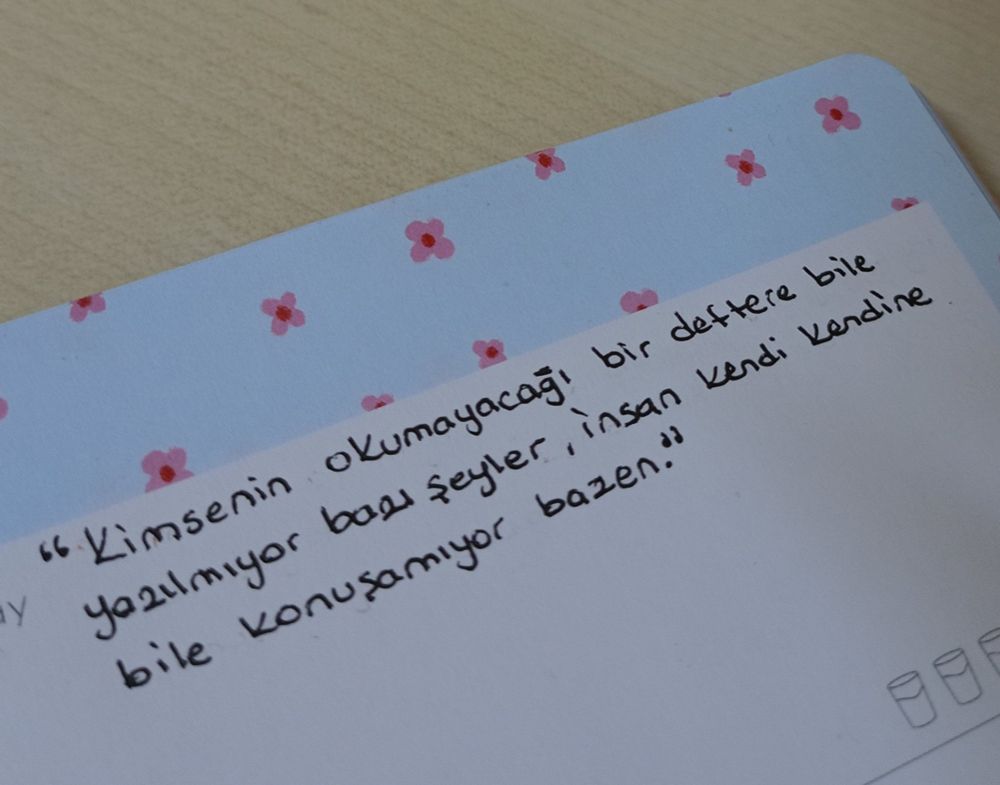 “Kimsenin okumayacağı bir deftere bile
yazılmıyor bazı şeyler, insan kendi kendine
bile konuşamıyor bazen.”